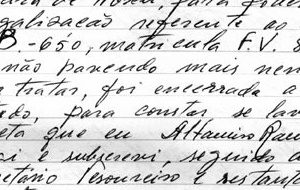 galização referente ao
B.-650, matricula F.V. 8
não havendo mais nem
tratar, foi encerrada a
para constar se lav
que eu Altamiro
e subscrevi, seguido a
etário Tesoureiro